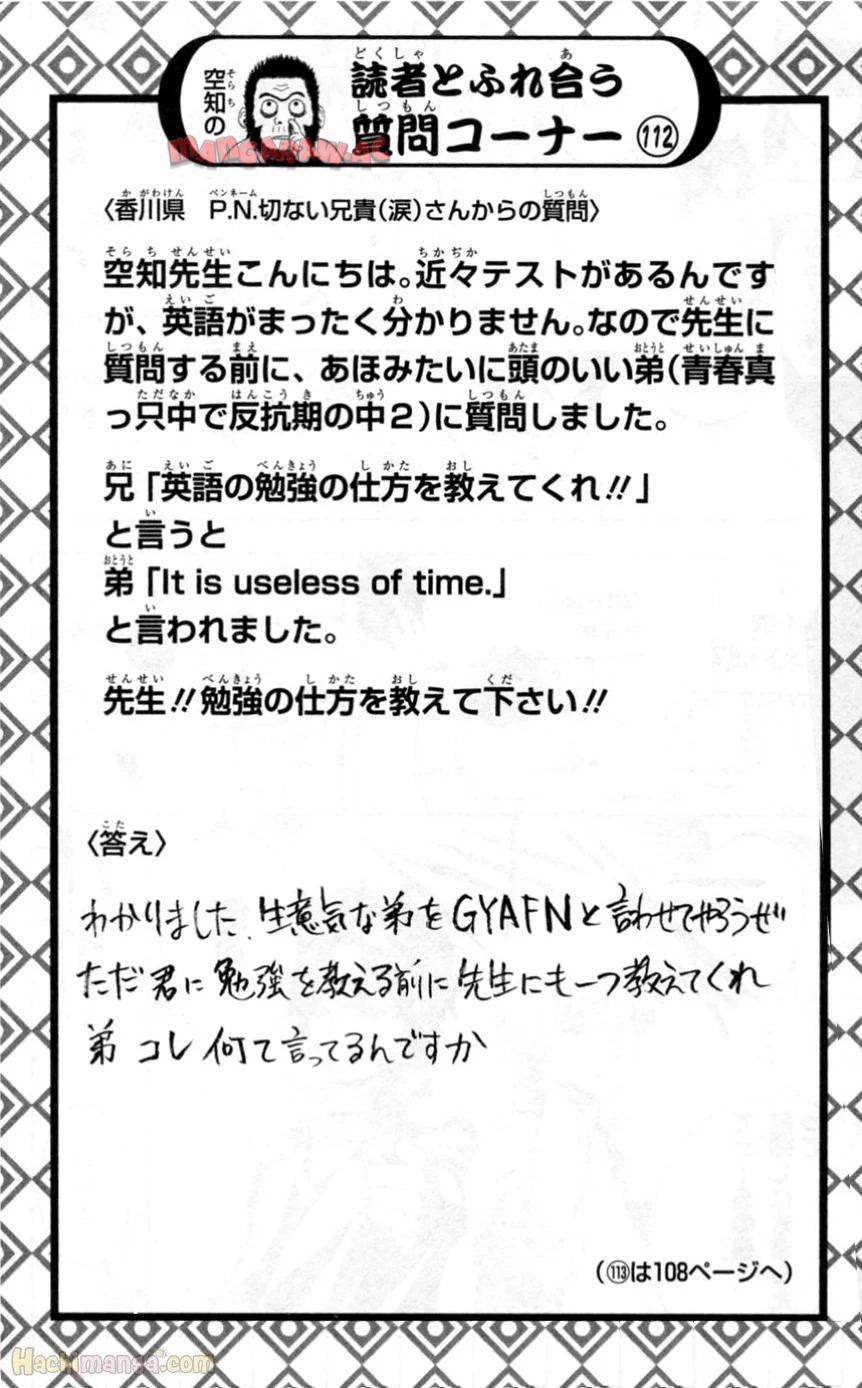 空知の
読者とふれ合う
質問コーナー 112
mangaraw.ac
〈香川県　P.N.切ない兄貴（涙）さんからの質問〉
空知先生こんにちは。近々テストがあるんです
が、英語がまったく分かりません。なので先生に
質問する前に、あほみたいに頭のいい弟（青春真
っ只中で反抗期の中２）に質問しました。
兄「英語の勉強の仕方を教えてくれ!!」
と言うと
弟「It is useless of time.」
と言われました。
先生!! 勉強の仕方を教えて下さい!!
〈答え〉
わかりました、生意気な弟をGYAFNと言わせてやろうぜ
ただ君に勉強を教える前に先生にも一つ教えてくれ
弟 コレ 何て言ってるんですか
（113は108ページへ）
Hackimanga.com